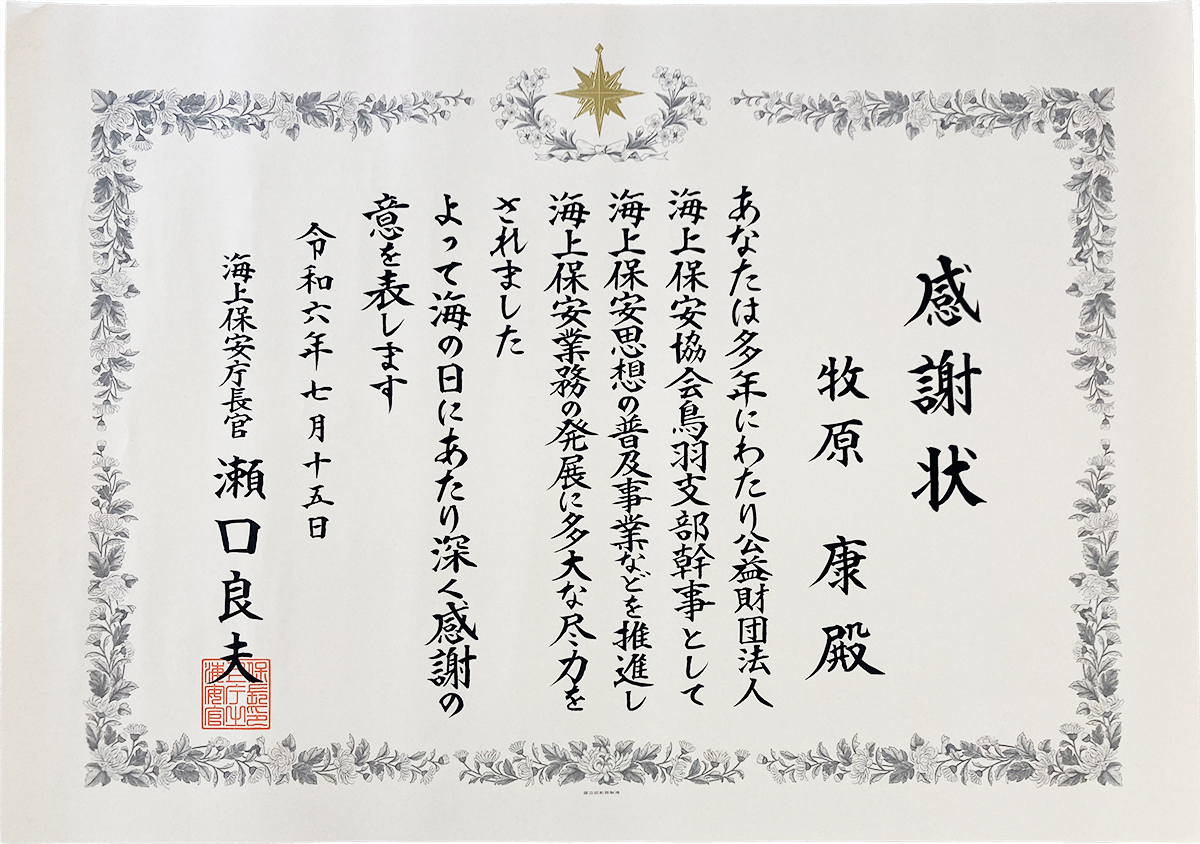 感謝状
牧原 康 殿
あなたは多年にわたり公益財団法人
海上保安協会鳥羽支部幹事として
海上保安思想の普及事業などを推進し
海上保安業務の発展に多大な尽力を
されました
よって海の日にあたり深く感謝の
意を表します
令和六年七月十五日
海上保安庁長官 瀬口良夫